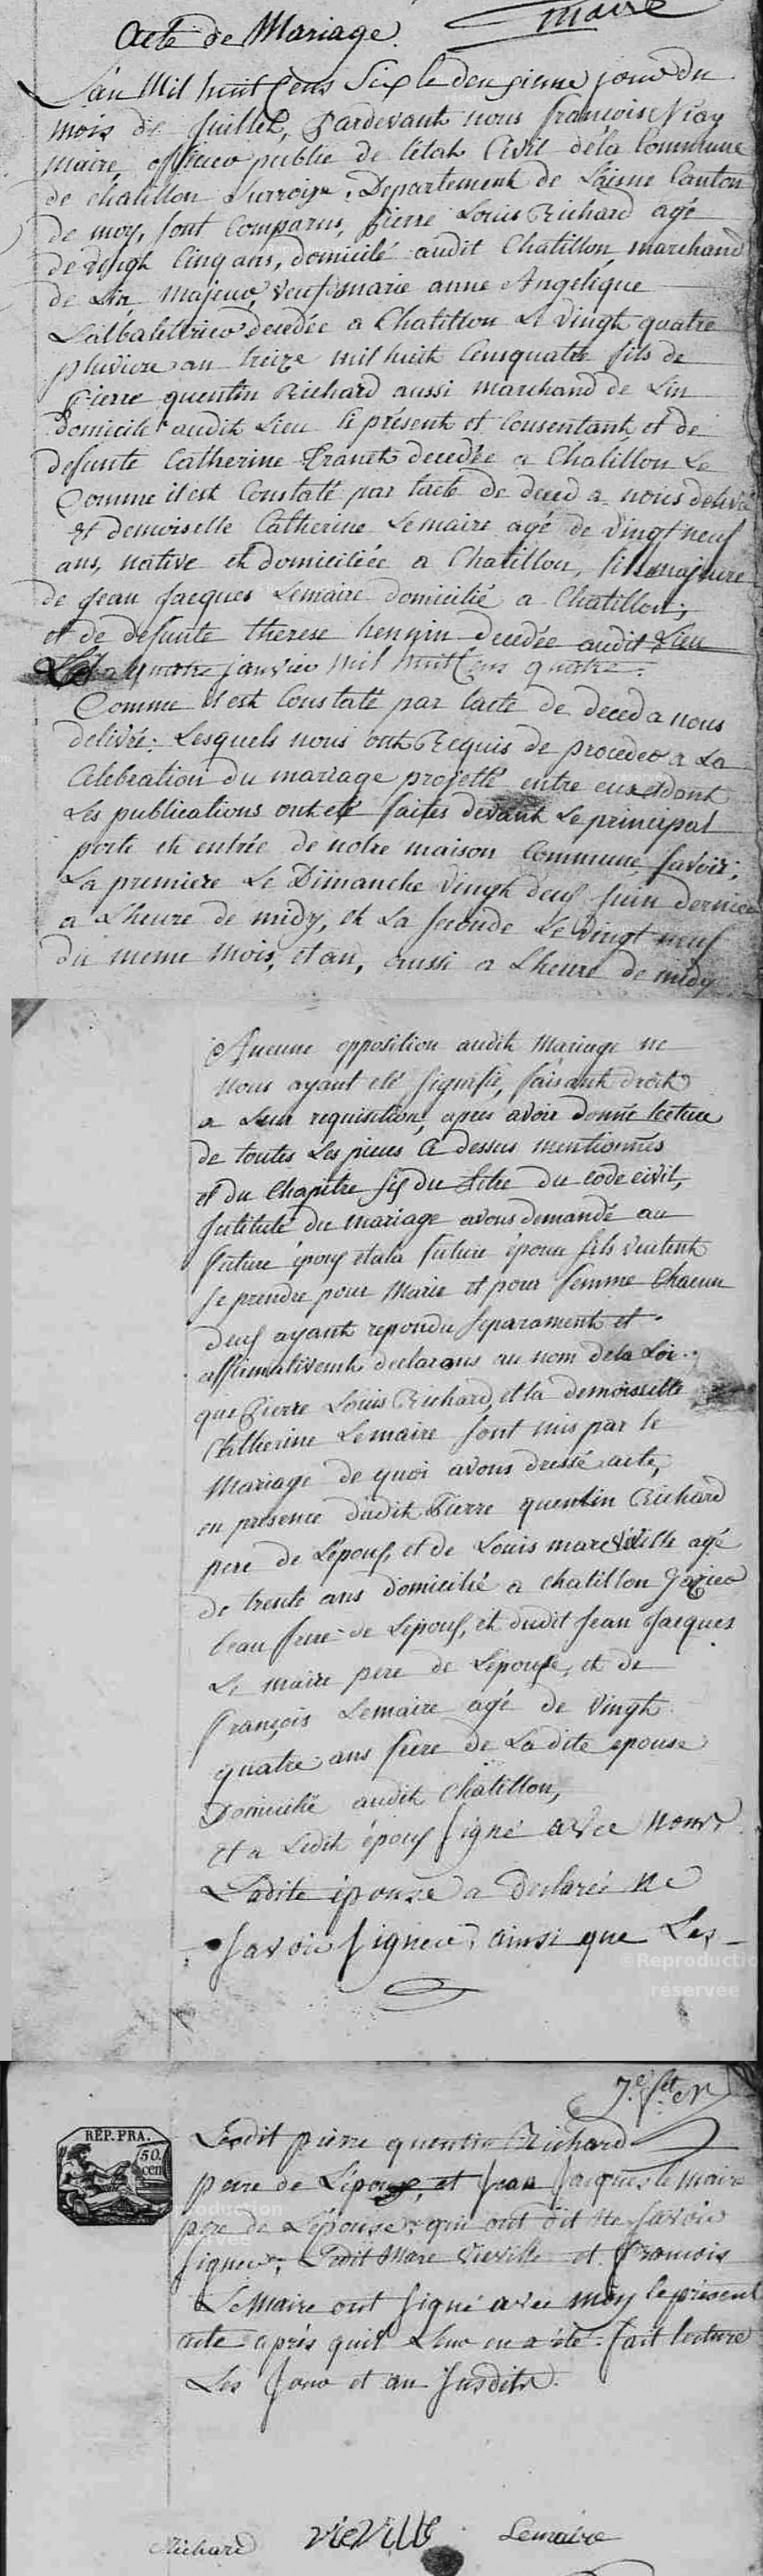 maire
Acte de Mariage.
L'an Mil huit Cens Six le deuxieme jour du
mois de Juillet, Pardevant nous francois
maire officier public de l'etat Civil dela Commune
de chatillon Surroise, Departement de Laisne Canton
de moy, sont Comparus, pierre Louis Richard agé
de vingt Cinq ans, domicilé audit Chatillon marchand
de Lin majeur, veuf marie anne Angelique
decedée a Chatillon Le vingt quatre
pluviose an treize mil huit Cens quatre fils de
Pierre quentin Richard aussi marchand de Lin
Domicile audit Lieu Ce présent et Consentant et de
defunte Catherine decedée a Chatillon Le
Comme il est Constaté par lacte de deced a nous delivré
et demoiselle Catherine Lemaire agé de vingt neuf
ans, native et domiciliée a Chatillon, fille majeure
de Jean Jacques Lemaire domicilié a Chatillon;
et de defunte therese hennin decedée audit Lieu
Le janvier mil huit Cens quatre.
Comme il est Constaté par lacte de deced a nous
delivré: Lesquels nous ont Requis de proceder a La
Celebration du mariage projetté entre eux et dont
Les publications ont eté faites devant Le principal
porte et entrée de notre maison Commune, savoir;
La premiere Le Dimanche vingt deux Juin dernier
a Lheure de midy, et La seconde Le vingt neuf
du meme mois, et an, aussi a Lheure de midy
Aucune opposition audit Mariage ne
Nous ayant eté signifié, faisant droit
a Leur requisition, apres avoir donné lecture
de toutes Les pieces Ci dessus mentionnés
et du Chapitre six du titre du code civil,
Jntitulé du mariage avons demandé au
future epoux et ala future épouse sils veulent
se prendre pour Marie et pour femme Chacun
deux ayant repondu separament et
affirmativemt declarons au nom dela Loi
que Pierre Louis Richard, et la demoisselle
Catherine Lemaire sont unis par le
Mariage de quoi avons dressé acte,
en presence dudit Pierre quentin Richard
pere de Lépoux, et de Louis marc Viéville agé
de trente ans domicilié a chatillon
beau frere de Lepoux, et dudit Jean Jacques
Le maire pere de Lépouse, et de
François Lemaire agé de vingt
quatre ans frere de Ladite epouse
Domicilié audit Chatillon,
Et a Ledit époux signé avec nous
Ladite épouse a declarée ne
savoir signer, ainsi que Les
©Reproduction
réservée
7.e
REP. FRA.
50
cen
Ledit pierre quentin Richard
pere de Lépoux, et Jean Jacques le maire
pere de Lépouse, qui ont dit ne savoir
signer; Ledit Marc Vieville et francois
Le Maire ont signé avec moy le présent
acte après quil Leur en a été fait lecture
Les Jour et an susdits.
Richard vieville Lemaire